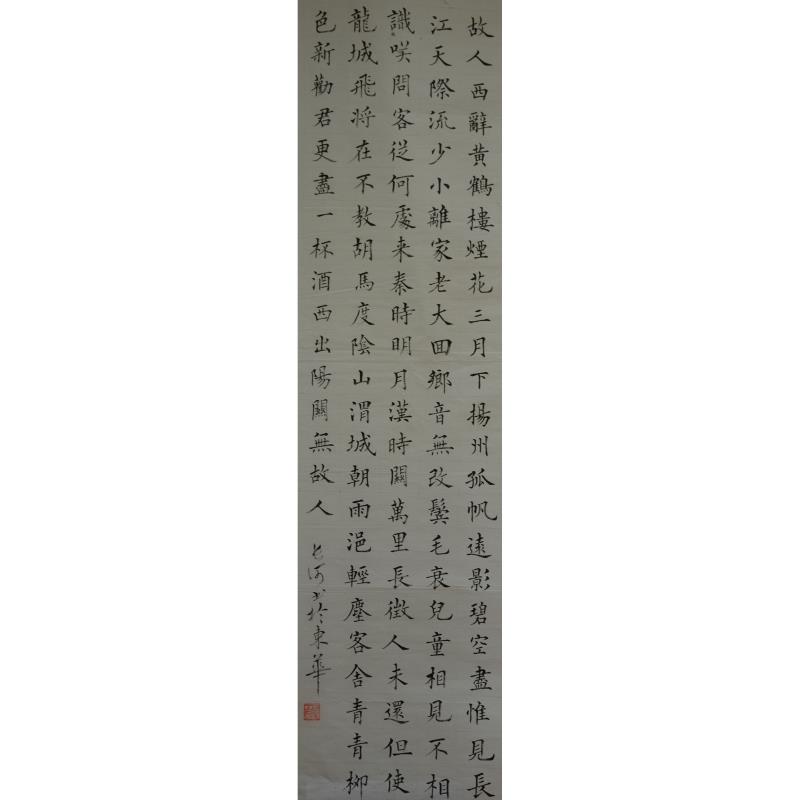 故人西辭黃鶴樓煙花三月下揚州孤帆遠影碧空盡惟見長
江天際流少小離家老大回鄉音無改鬢毛衰兒童相見不相
識咲問客從何處来秦時明月漢時關萬里長徵人未還但使
龍城飛将在不教胡馬度陰山渭城朝雨浥輕塵客舍青青柳
色新勸君更盡一杯酒西出陽關無故人
書於東華